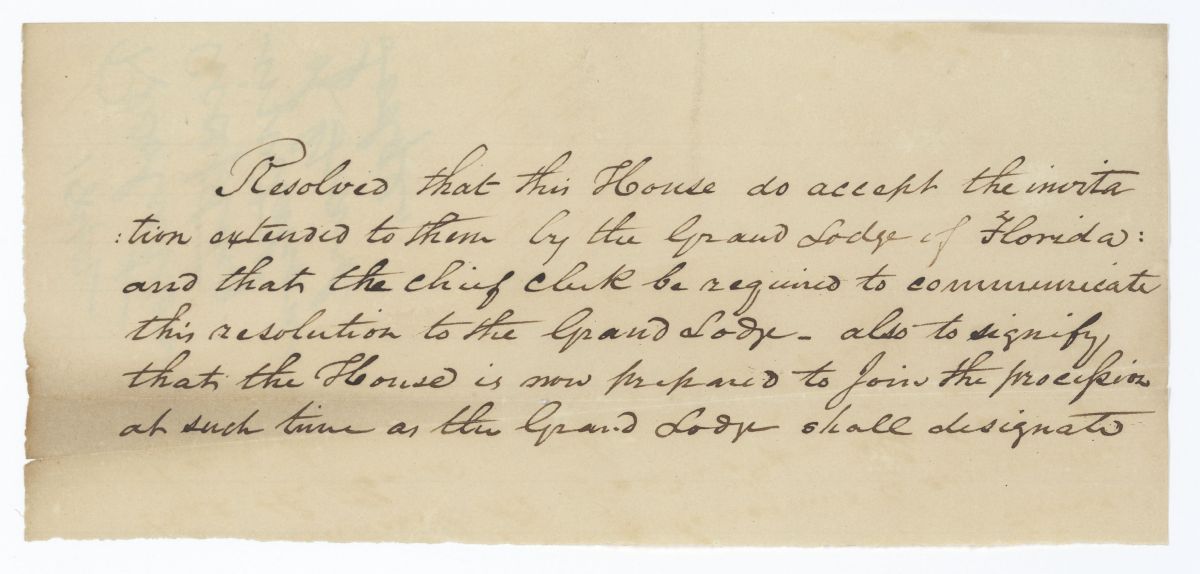 Resolved that this House do accept the invita
:tion extended to them by the Grand Lodge of Florida:
and that the chief clerk be required to communicate
this resolution to the Grand Lodge - also to signify
that the House is now prepared to Join the procession
at such time as the Grand Lodge shall designate